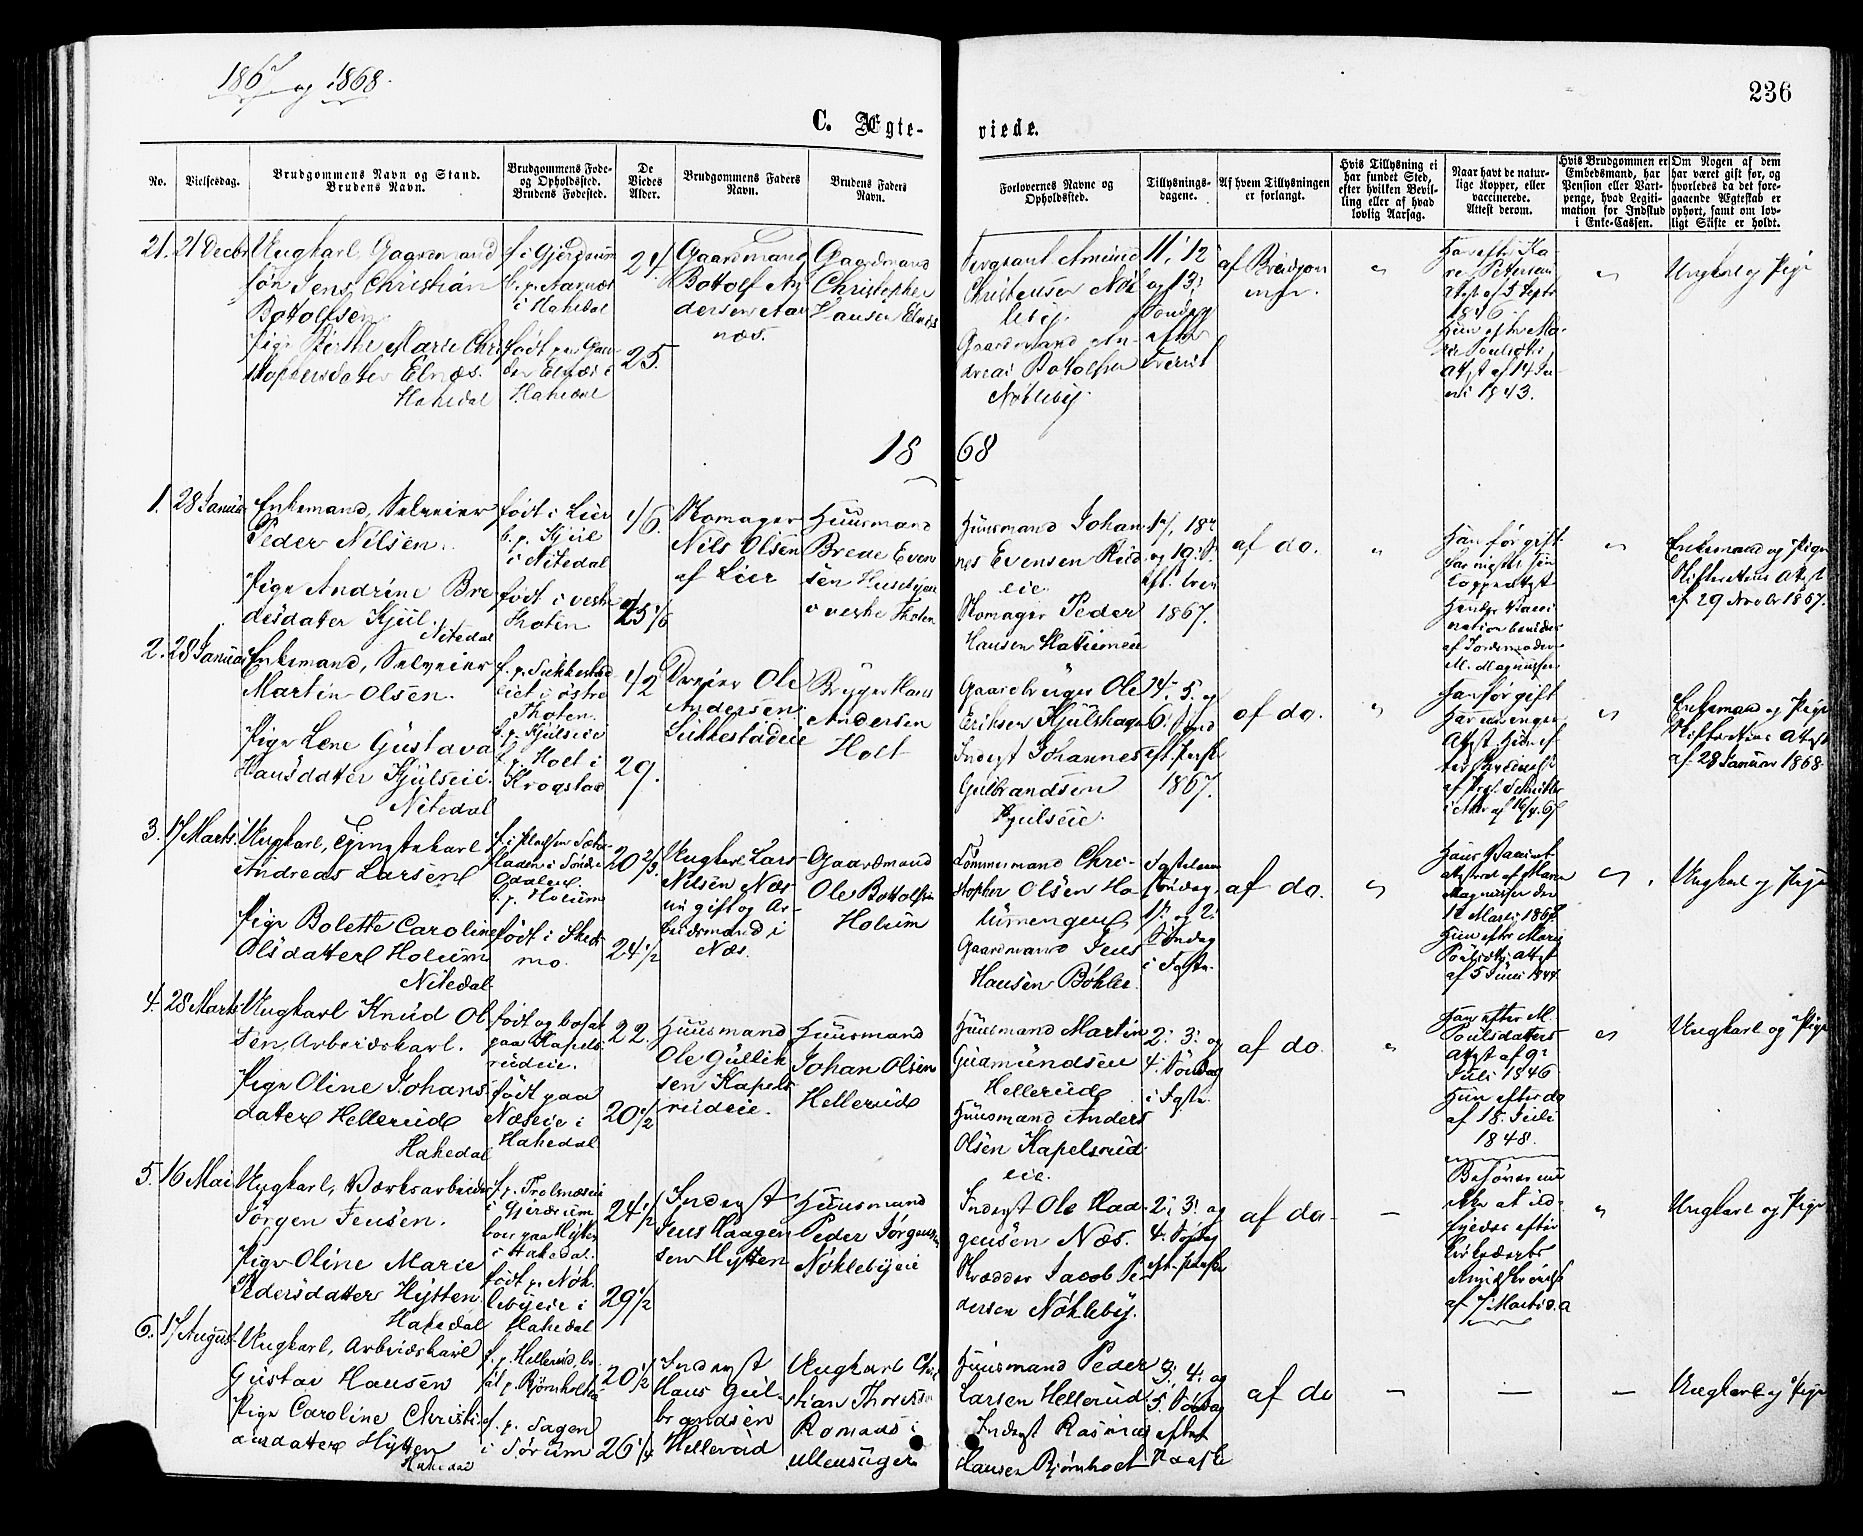 1867 og 1868.
236
C. Ægte-
viede.
No.
Vielsesdag.
Brudgommens Navn og Stand.
Brudens Navn.
Brudgommens Føde-
og Opholdssted.
Brudens Fødested.
De
Viedes
Alder.
Brudgommens Faders
Navn.
Brudens Faders
Navn.
Forlovernes Navne og
Opholdssted.
Tillysnings-
dagene.
Af hvem Tillysningen
er forlangt.
Hvis Tillysning ei
har fundet Sted,
efter hvilken Bevil-
ling eller af hvad
lovlig Aarsag.
Naar havt de natur-
lige Kopper, eller
vaccinerede.
Attest derom.
Hvis Brudgommen er
Embedsmand, har
Pension eller Vart-
penge, hvad Legiti-
mation for Indskud
i Enke-Cassen.
Om Nogen af dem
har været gift før, og
hvorledes da det fore-
gaaende Ægteskab er
ophørt, samt om lov-
ligt Skifte er holdt.
21. 21 Decbr
Ungkarl, Gaardmand
søn Jens Christian
Bottolfsen.
Pige Birthe Marie Chri
stophersdatter Elnæs.
Hakedal
f. i Gjerdrum
b. p. Aasnæs
i Hakedal
født paa Gaar-
den Elnæs i
Hakedal
25.
Gaardmand
Bottolf An
dersen Aas
næs.
Gaardmand
Christopher
Hansen Elnæs
Sergeant Amund
Christensen Nøk
leby.
Gaardmand An-
dreas Bottolfsen
Nøkleby
11, 12
og 13
Søndag
efter
Trenit
af Brudgom
men.
Han efter Ka
ren Petersen
Attest af 5 Septr
1846.
Hun efter Ma-
ri Poulsdtr
Attest af 14 Ju-
ni 1843.
Ungkarl og Pige
18 68
1. 28 Januar
Enkemand, Selveier
Peder Nilsen.
Pige Andrine Bre
desdatter Kjul.
Nitedal
født i Lier
b. p. Kjul
i Nitedal
født i vestre
Thoten
46.
Komager
Nils Olsen
af Lier
Huusmand
Brede Even
sen Husebyeie
vestre Thoten
Huusmand Johan-
nes Evensen Rud
eie.
Komager Peder
Hansen Hatlemeie
17, 18
og 19 S.
eft. tren
1867.
af do.
Han før gift
har mistet sin
koppeattest
Hendes Vacci
nation bevidnes
af Jordemoder
M. Magnussen
Enkemand og Pige
Skifterettens Attest
af 29 Novbr 1867.
2. 28 Januar
Enkemand, Selveier
Martin Olsen.
Pige Lene Gustava
Hansdatter Kjulseie.
Nitedal
f. p. Sukkestad
eiet i østre
Thoten.
b. p. Kjulseie
f. p. Holt i
Krogstad
42
29.
Dreier Ole
Andersen
Sukkestadeie
Bryger Hans
Andersen
Holt
Gaardbruger Ole
Eriksen Kjulshage
Inderst Johannes
Gulbrandsen
Kjulseie.
14, 5. og
6. Sønd
eft. Paaske
1867.
af do.
Han før gift
Enkemand og Pige
Skifterettens Attest
af 28 Januar 1868
3. 17 Marts.
Ungkarl, Tjenestekarl
Andreas Larsen
Pige Bolette Caroline
Olsdatter Holum
Nitedal
b. p. Holum
født i Sked-
mo.
20 2/3.
24 1/2
Ungkarl Lars
Nilsen Næs
ugift og Ar-
beidsmand i
Næs.
Gaardmand
Ole Bottolfsen
Holum
Tømmermand Chri-
stopher Olsen Ho
lumengen
Gaardmand Jens
Hansen Bøhler.
Fastelavn
Søndag
1. og 2.
Søndag
i Faste.
af do.
Hans Vaccinat
attesteret af Maren
Magnussen den
12 Marts 1868
Hun efter Mari
Poulsdtr. Attest
af 5 Juni 1844
Ungkarl og Pige
4. 28 Marts
Ungkarl Knud Ol
sen, Arbeidskarl.
Pige Oline Johans-
datter Hellerud
Hakedal
født og bosat
paa Kapels-
rudeie.
født paa
Næseie i
Hakedal
22.
20 1/2
Huusmand
Ole Gullik
sen Kapels
rudeie.
Huusmand
Johan Olsen
Hellerud
Huusmand Martin
Gudmundsen
Hellerud
Huusmand Anders
Olsen Kapelsrud
eie.
2. 3. og
4. Søndag
i Faste.
af do.
Han efter M.
Poulsdatters
Attest af 9.
Juli 1846
Hun efter do
af 18. Juli
1848.
Ungkarl og Pige
5. 16 Mai
Ungkarl, Værksarbeider
Jørgen Jensen.
Pige Oline Marie
Pedersdatter Hytten.
Hakedal
i Gjerdrum
boer paa Hytten
i Hakedal.
født p. Nøk
lebyeie i
Hakedal
24 1/2
29 1/2
Inderst
Jens Haagen
sen Hytten
Huusmand
Peder Jørgensen
Nøklebyeie
Inderst Ole Haa-
gensen Næs.
Skrædder Jacob Pe
dersen Nøkleby.
2. 3. og
4. Søndag
eft. Paaske
af do.
Behøves nu
ikke at ud-
fyldes efter
Kirkedepts
Rundskrivelse
af 7 Marts d. A
Ungkarl og Pige
6. 17 August.
Ungkarl, Arbeidskarl
Gustav Hansen
Pige Caroline Christi-
ansdatter Hytten
Hakedal
f. p. Hellerud, bo
sat p. Bjørnholteie
f. p. Fagen
i Sørum
20 1/2
26 1/4
Inderst
Hans Gul-
brandsen
Hellerud
Ungkarl Chri
stian Thoresen
Romsaas i
Ullensager
Huusmand Peder
Larsen Hellerud
Inderst Rasmus
Hansen Bjørnholt
3., 4. og
5. Søndag
efter
Paaske
af do
Ungkarl og Pige